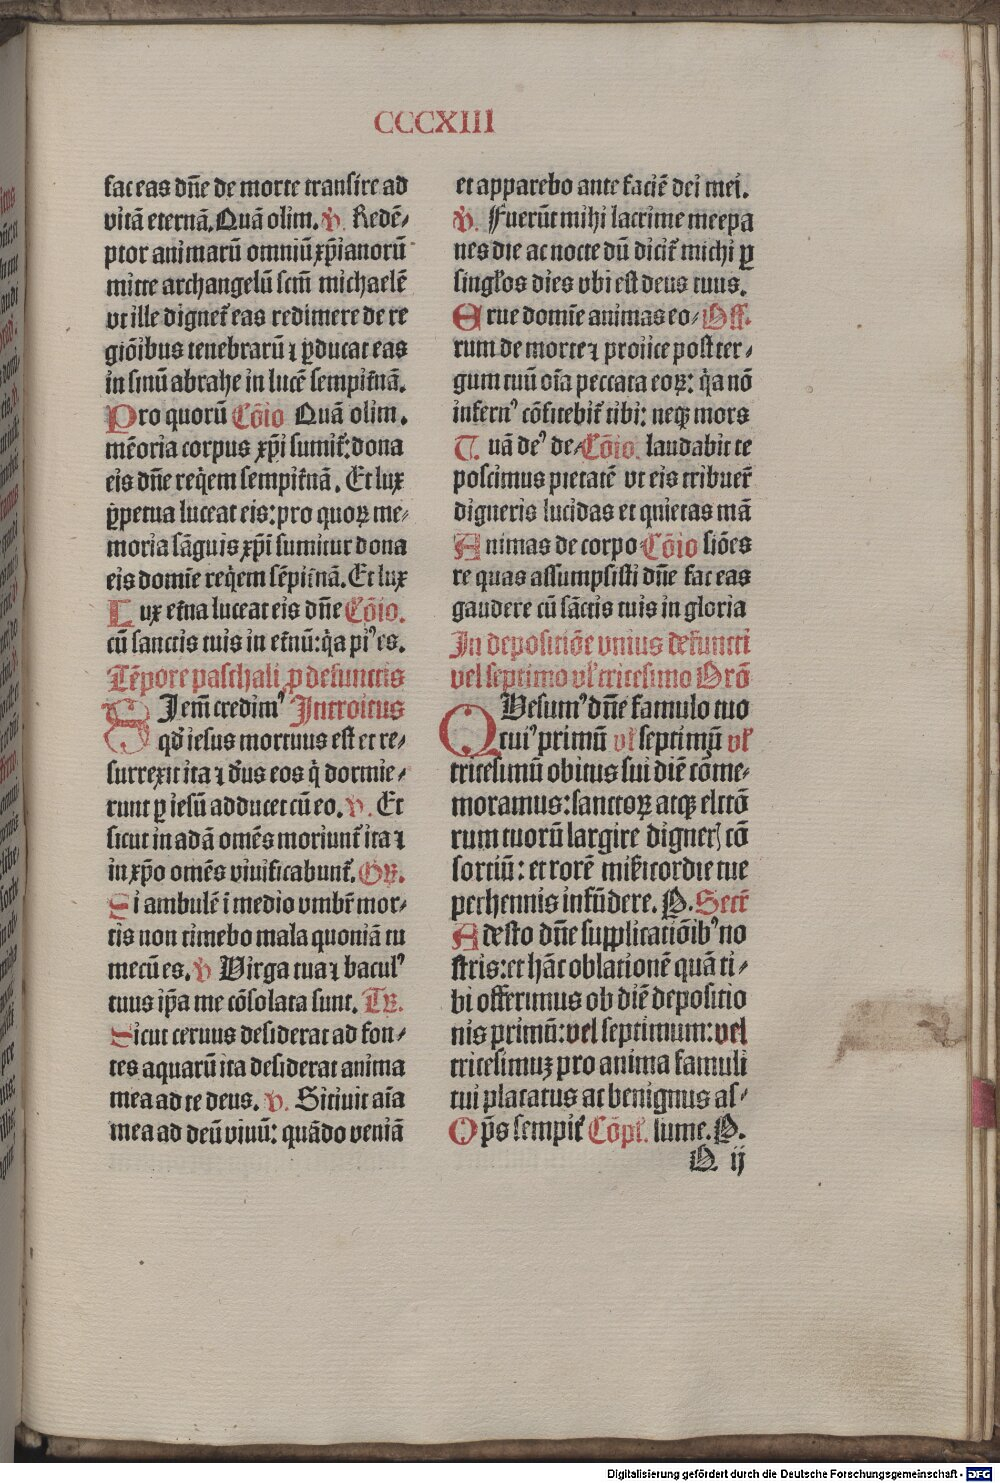 CCCXIII
fac eas dn̄e de morte transire ad
vitā eternā. Quā olim. v̊. Redē⸗
ptor animarū omniū xp̄ianorū
mitte archangelū scm̄ michaelē
vt ille dignet̄ eas redimere de re
giōibus tenebrarū ⁊ ꝑducat eas
in sinū abrahe in lucē sempit̄nā.
Pro quorū Cōio Quā olim.
mēoria corpus xp̄i sumit̄: dona
eis dn̄e req̇em sempit̄nā. Et lux
ꝑpetua luceat eis: pro quoꝝ me⸗
moria sāguis xp̄i sumitur dona
eis domīe req̇em sēpit̄nā. Et lux
Lux et̄na luceat eis dn̄e Cōio.
cū sanctis tuis in et̄nū: q̇a piꝰ es.
Tēpore paschali ꝓ defunctis
SIcm̄ credimꝰ Introitus
qd̓ iesus mortuus est et re⸗
surrexit ita ⁊ de᷒us eos q̇ dormie⸗
runt ꝑ iesū adducet cū eo. v̊. Et
sicut in adā omēs moriunt̄ ita ⁊
in xp̄o omēs viuificabunt̄. GR.
Si ambulē ī medio vmbr̄ mor⸗
tis non timebo mala quoniā tu
mecū es. v̊ Virga tua ⁊ baculꝰ
tuus ip̄a me cōsolata sunt. TR.
Sicut ceruus desiderat ad fon⸗
tes aquarū ita desiderat anima
mea ad te deus. v̊. Sitiuit aīa
mea ad deū viuū: quādo veniā
et apparebo ante faciē dei mei.
v̊. Fuerūt mihi lacrime mee pa
nes die ac nocte dū dicit̄ michi ꝑ
singl̓os dies vbi est deus tuus.
Erue domīe animas eo⸗ Off.
rum de morte ⁊ proiice post ter⸗
gum tuū oīa peccata eoꝝ: q̇a nō
infernꝰ cōfitebit̄ tibi: neqꝫ mors
Tuā deꝰ de⸗ Cōio. laudabit te
poscimus pietatē vt eis tribuer̄
digneris lucidas et quietas mā
Animas de corpo Cōio siōes
re quas assumpsisti dn̄e fac eas
gaudere cū sāctis tuis in gloria
In depositiōe vnius defuncti
vel septimo vl̓ tricesimo Orō
QVesumꝰ dn̄e famulo tuo
cuiꝰ primū vl̓ septimū vl̓
tricesimū obitus sui diē cōme⸗
moramus: sanctoꝝ atqꝫ elctō
rum tuorū largire digner̄ cō
sortiū: et rorē mis̄icordie tue
perhennis infūdere. P. Secr̄
Adesto dn̄e supplicatiōibꝰ no
stris: et hāc oblationē quā ti⸗
bi offerimus ob diē depositio
nis primū: vel septimum: vel
tricesimuꝫ pro anima famuli
tui placatus ac benignus as⸗
Op̄s sempit̄ Cōpl̓. sume. P.
Q ij
Digitalisierung gefördert durch die Deutsche Forschungsgemeinschaft - DFG